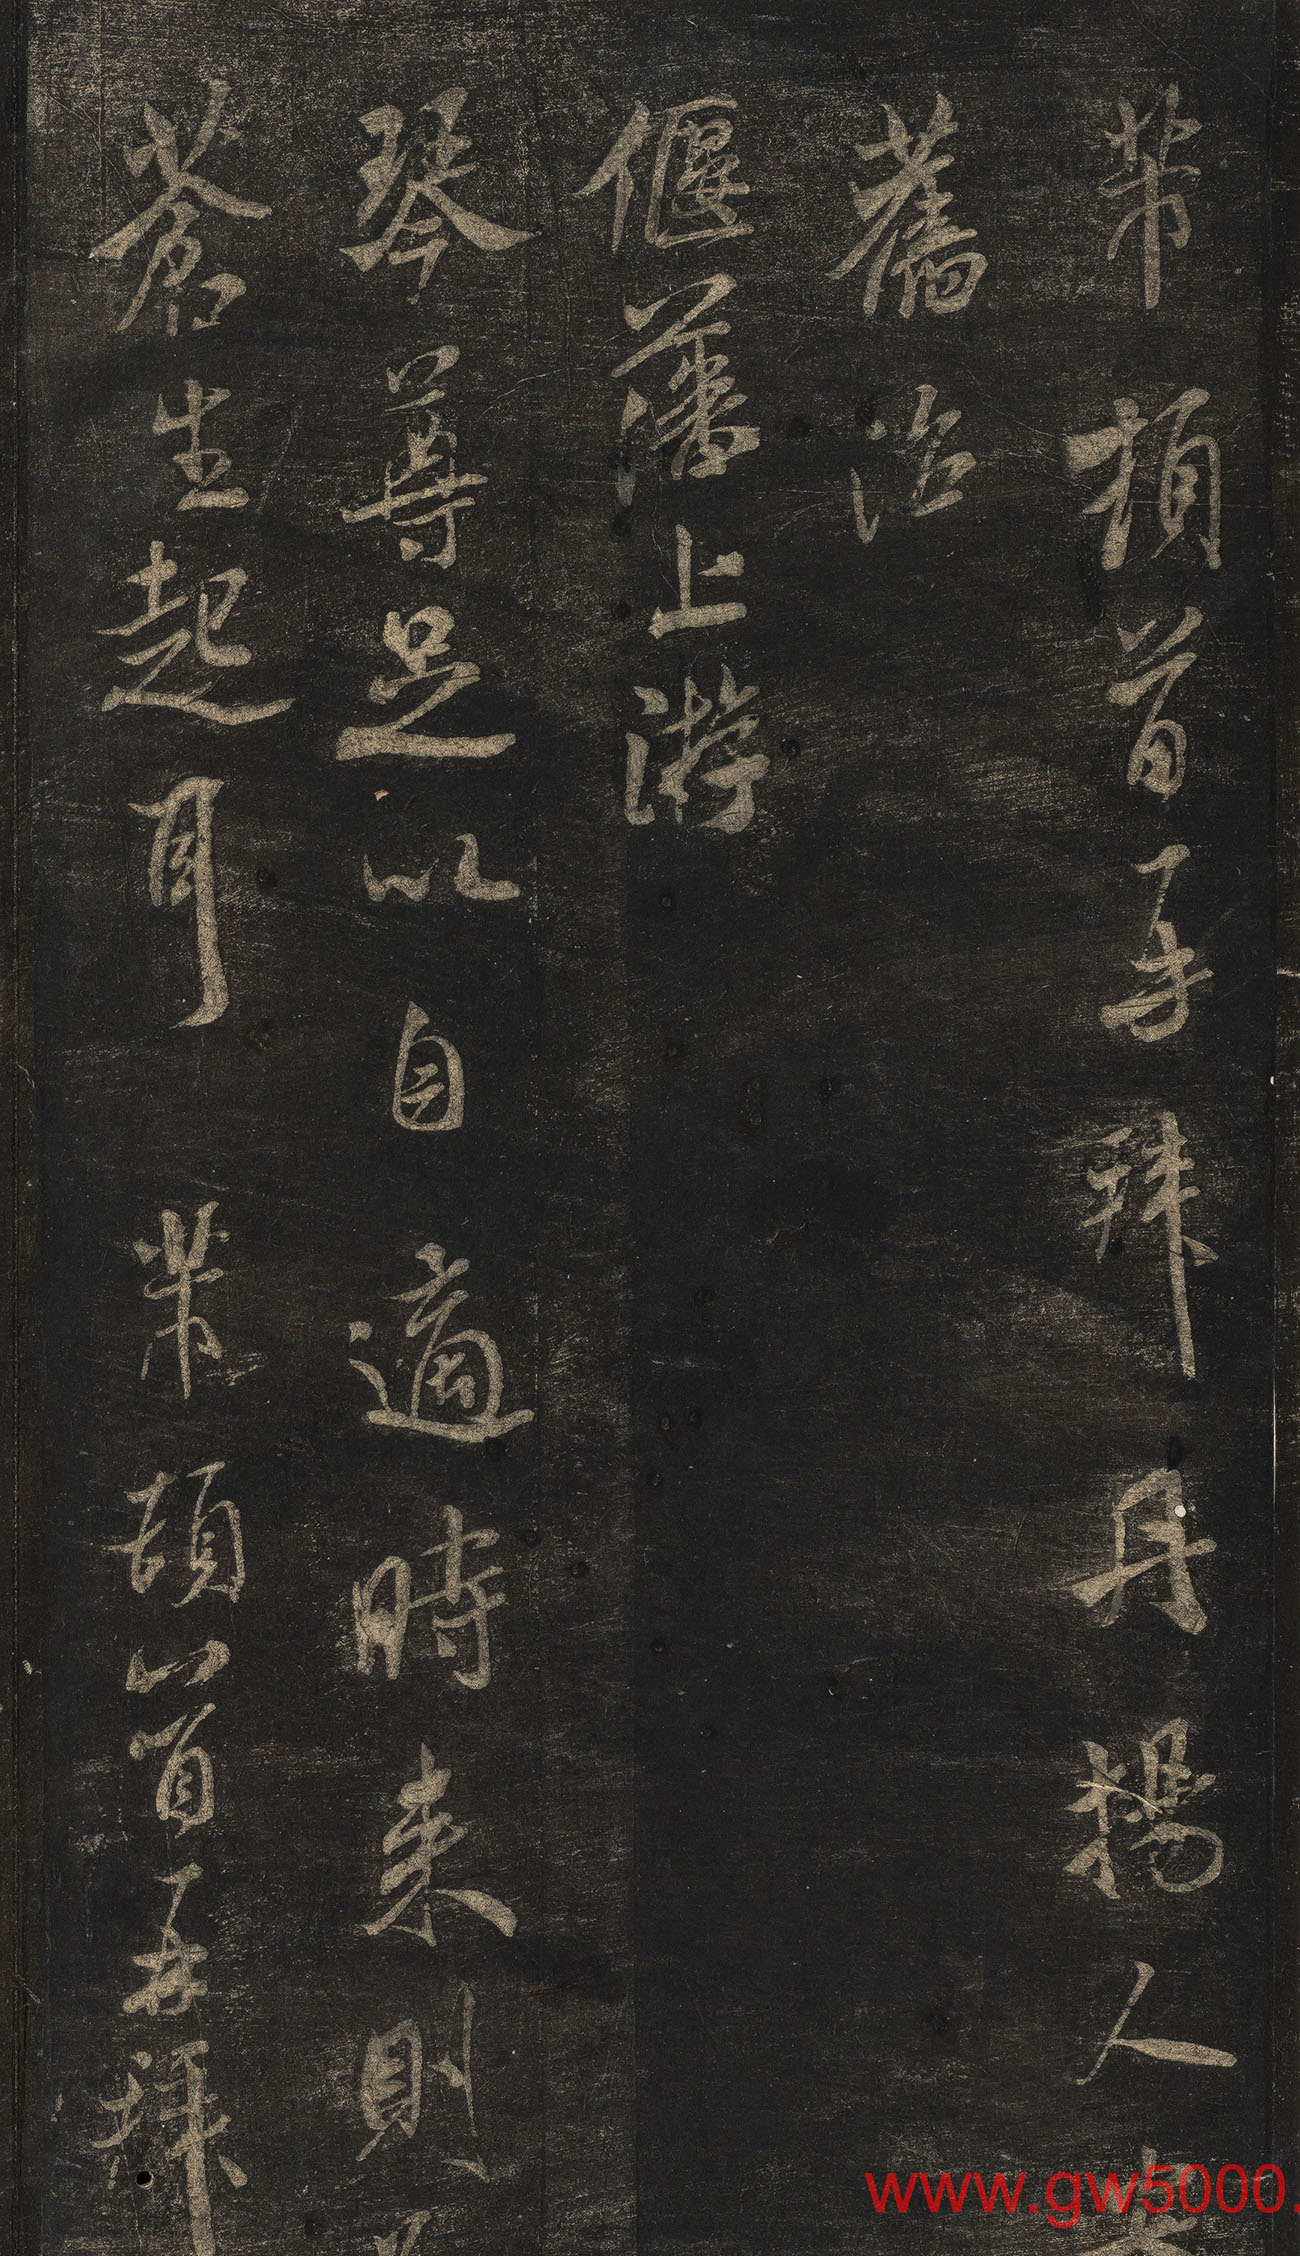 芾頓首再拜丹楊人
舊治
偃藩上游
琴尊足以自適時来則
蒼生起耳 芾頓首再拜
www.gw5000.